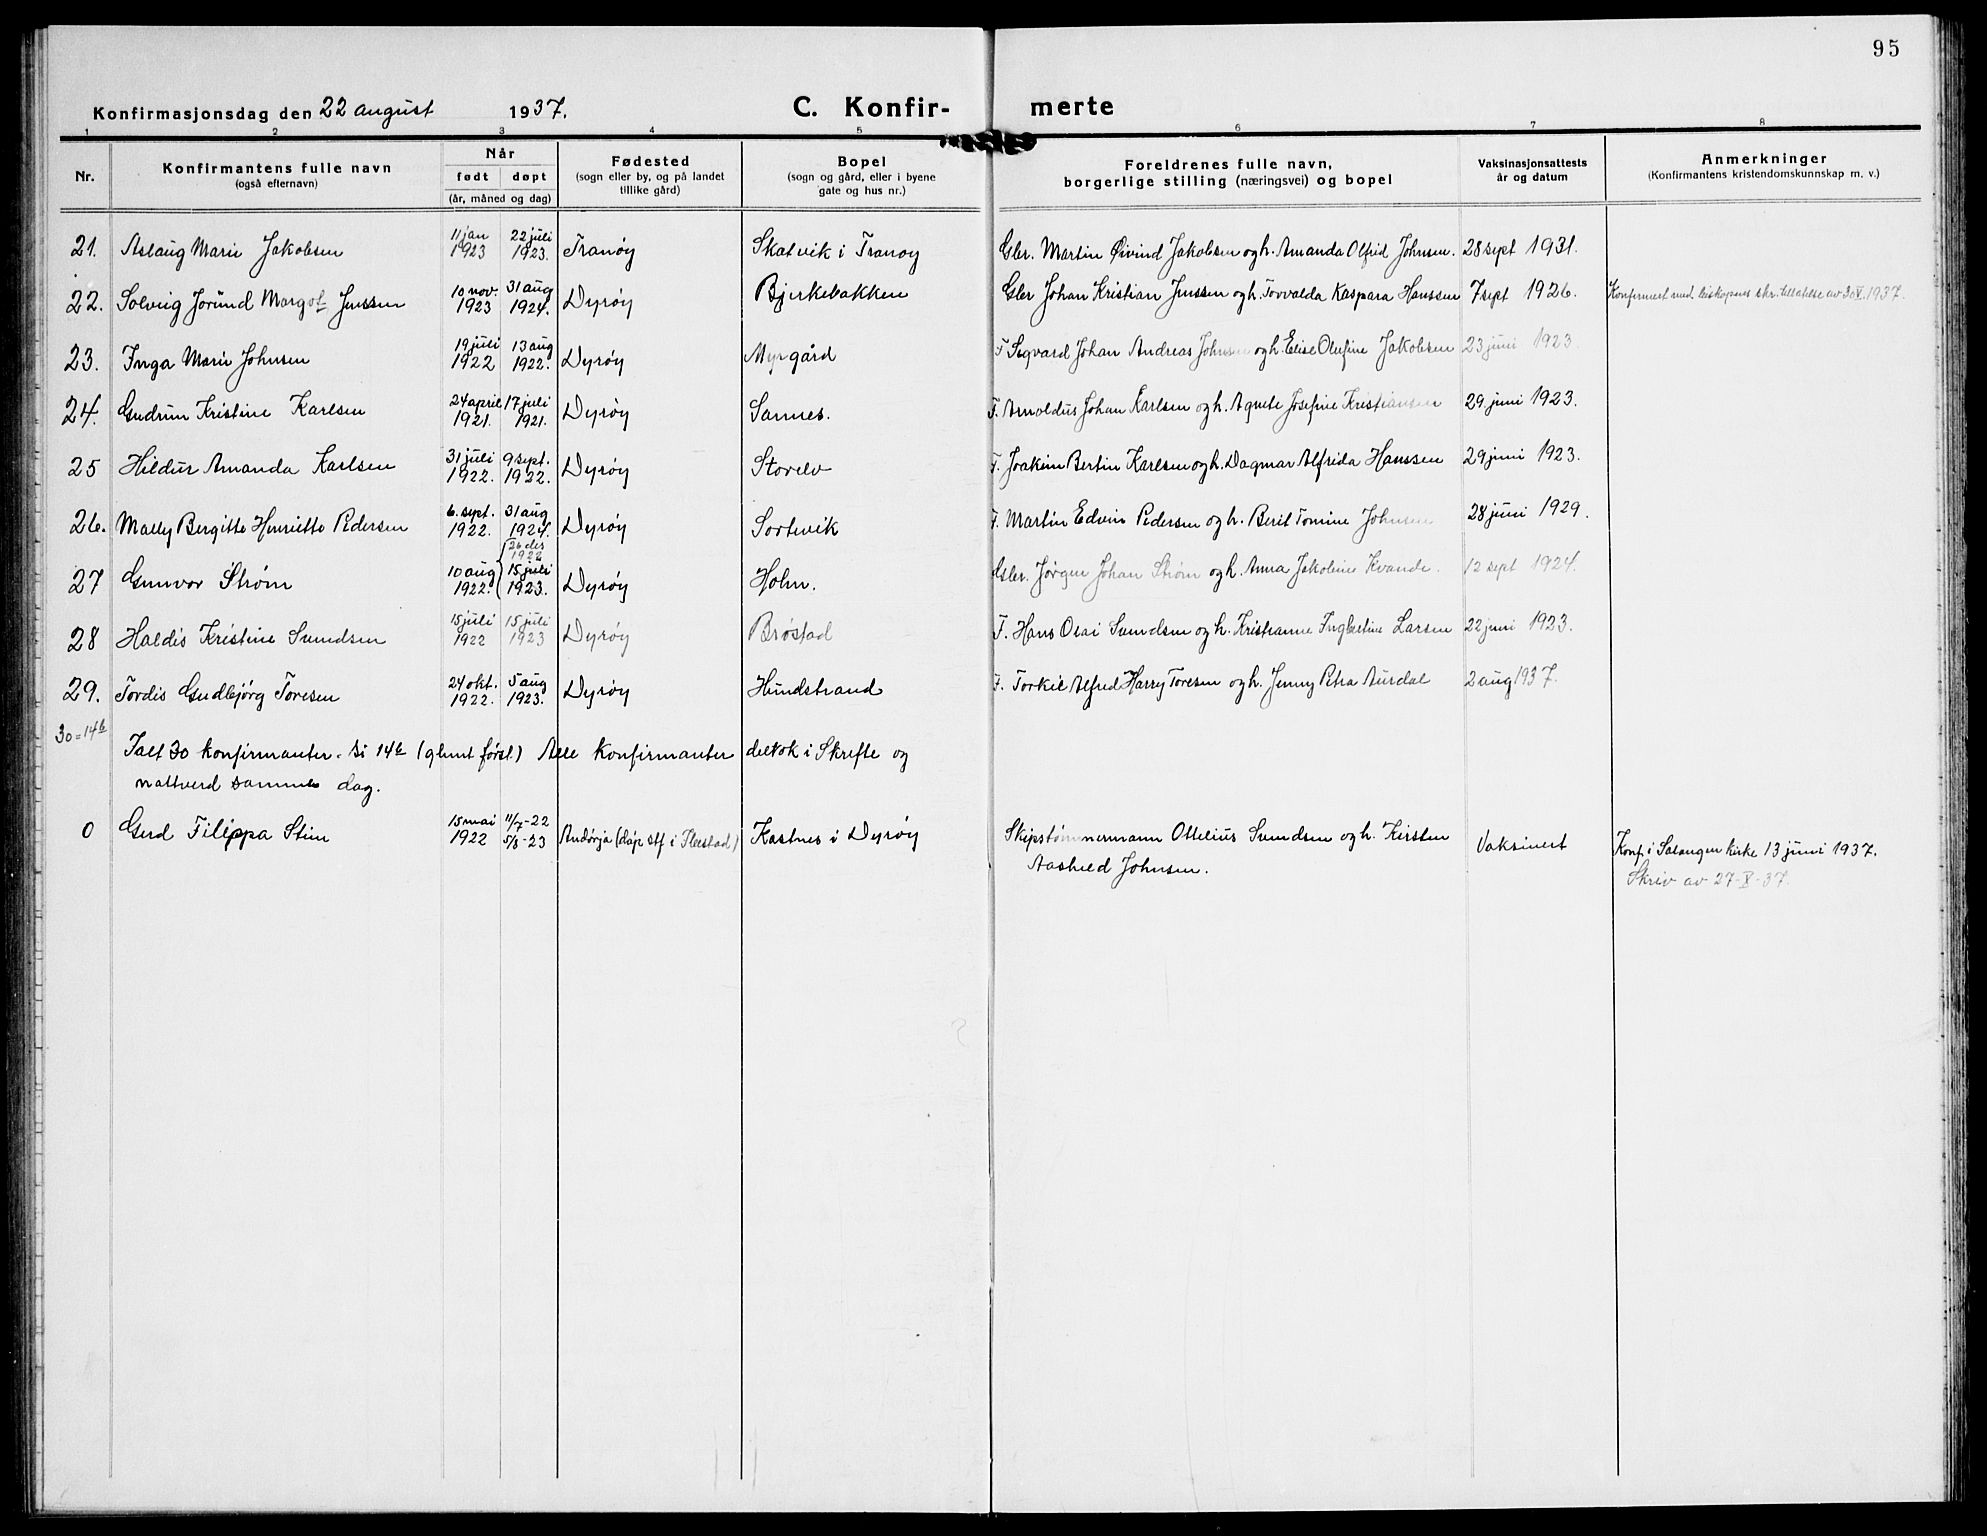 95
Konfirmasjonsdag den 22 august 1937. C. Konfir- merte
1 2 3 4 5 6 7 8
Nr. Konfirmantens fulle navn (også efternavn) Når født døpt (år, måned og dag) Fødested (sogn eller by, og på landet tillike gård) Bopel (sogn og gård, eller i byene gate og hus nr.) Foreldrenes fulle navn, borgerlige stilling (næringsvei) og bopel Vaksinasjonsattests år og datum Anmerkninger (Konfirmantens kristendomskunnskap m. v.)
21. Aslaug Marie Jakobsen 11 jan 1923 22 juli 1923. Tranøy Skatvik i Tranøy Gbr. Martin Øivind Jakobsen og h. Amanda Olfrid Johnsen. 28 sept 1931.
22. Solveig Jorund Margot Jenssen 10 nov. 1923 31 aug 1924. Dyrøy Bjerkebakken Gbr Johan Kristian Jenssen og h. Torvalda Kaspara Hanssen 7 sept 1926. Konfirmert med biskopens skr. tillatelse av 30 V. 1937.
23. Inga Marie Johnsen 19 juli 1922 13 aug 1922. Dyrøy Myrgård F Sigvard Johan Andreas Johnsen og h. Elise Olufine Jakobsen 23 juni 1923.
24. Gudrun Kristine Karlsen 24 april 1921. 17 juli 1921. Dyrøy Sannes. F. Arnoldus Johan Karlsen og h. Agnete Josefine Kristiansen 29 juni 1923.
25 Hildur Amanda Karlsen 31 juli 1922. 9 sept. 1922. Dyrøy Storelv F. Joakim Bertin Karlsen og h. Dagmar Alfrida Hanssen 29 juni 1923.
26. Mally Bergitte Henriette Pedersen 6. sept. 1922. 31 aug 1924. Dyrøy Sortevik F. Martin Edvin Pedersen og h. Berit Tomine Johnsen 28 juni 1929.
27 Gunvor Strøm 10 aug 1922. 26 des 1922 15 juli 1923. Dyrøy Holm. Gbr. Jørgen Johan Strøm og h. Anna Jakobine Kvande. 12 sept 1924.
28 Haldis Kristine Svendsen 15 juli 1922 15 juli 1923 Dyrøy Brøstad F. Hans Osai Svendsen og h. Kristianne Ingbertine Larsen 22 juni 1923.
29. Tordis Gudbjørg Toresen 24 okt. 1922. 5 aug 1923. Dyrøy Hundstrand F. Torkil Alfred Harry Toresen og h. Jenny Petra Aurdal 2 aug 1937.
30 = 14b
Ialt 30 konfirmanter. Se 14b (glemt først.) Alle konfirmanter deltok i Skrifte og
nattverd samme dag.
0 Gerd Filippa Stim 15 mai 1922 11/7-22 5/8-23 Andørja (dåp stf i Ibestad) Kastnes i Dyrøy Skipstømmermann Ottelius Svendsen og h. Kirsten Vaksinert Konf. i Salangen kirke 13 juni 1937.
Aashild Johnsen. Skriv av 27-X-37.